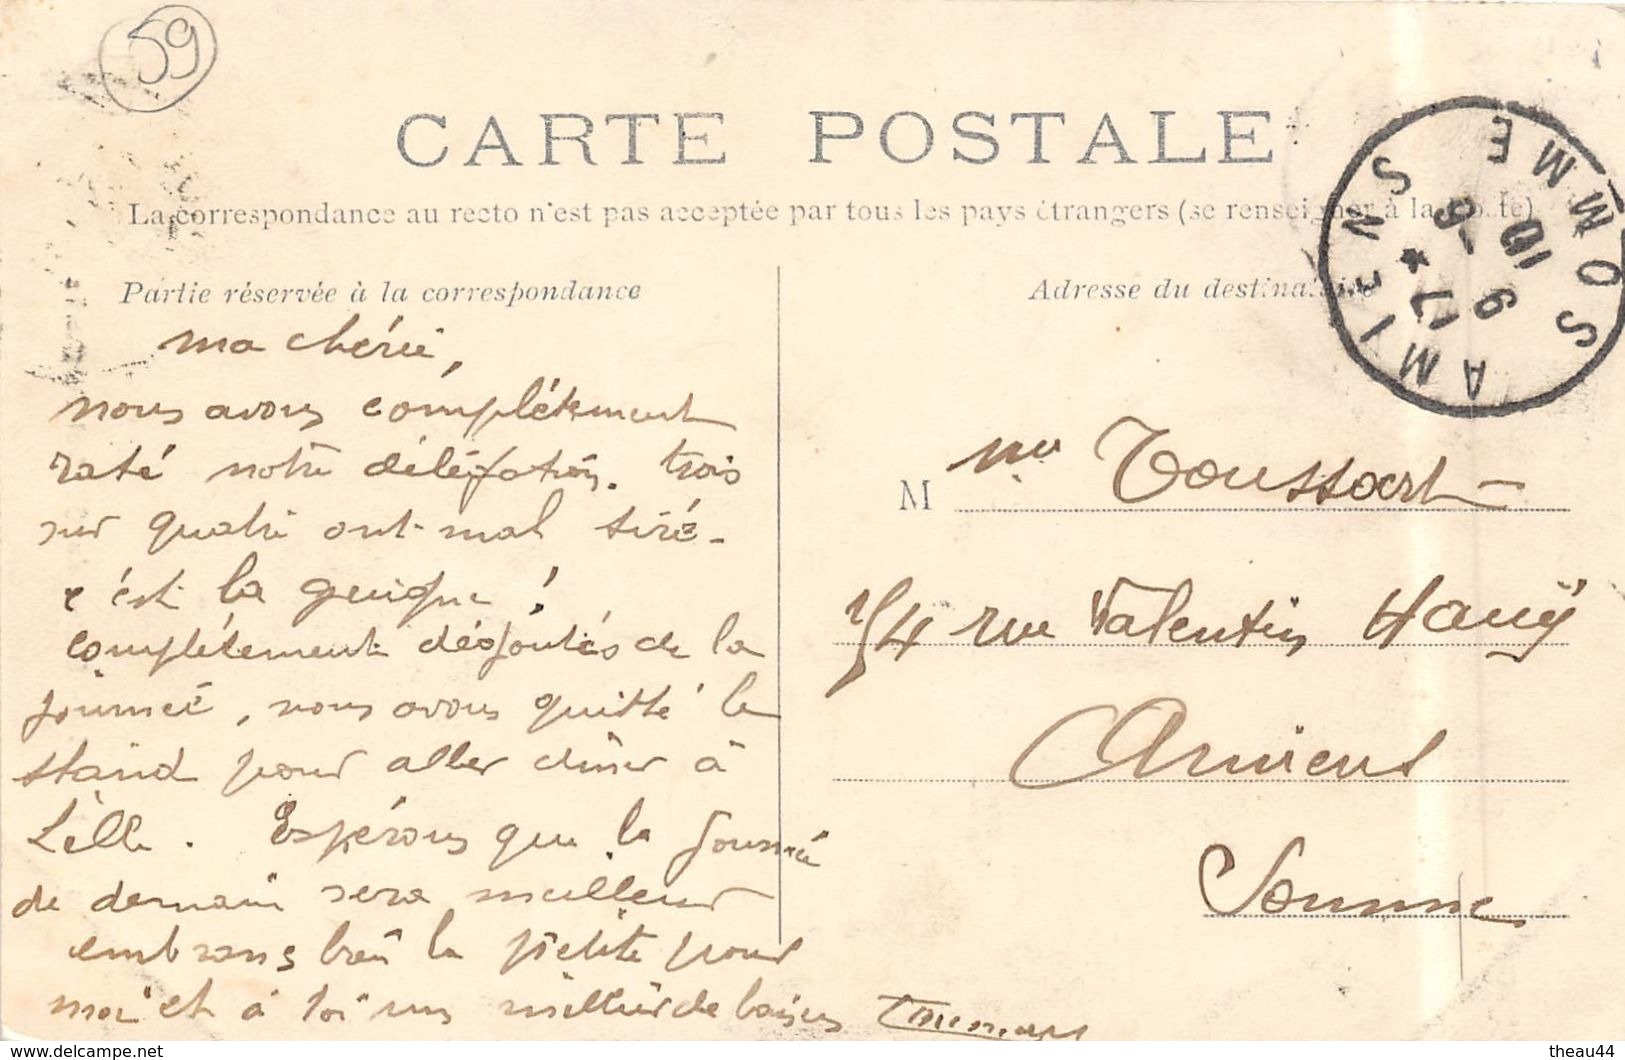 59
CARTE POSTALE
La correspondance au recto n'est pas acceptée par tous les pays étrangers (se renseigner à la Poste)
Partie réservée à la correspondance
ma chérie,
nous avons complétement
raté notre délégation. trois
sur quatre ont mal tiré.
c'est la guigne !
complétement dégoutés de la
journée, nous avons quitté le
stand pour aller diner à
Lille. Espérons que la journée
de demain sera meilleur
embrasse bien la petite pour
moi et à toi un millier de baisers
Adresse du destinataire
M me Toussart
54 rue Valentin Hauÿ
Amiens
Somme
AMIENS SOMME
17 * 6
9 - 10
theau44